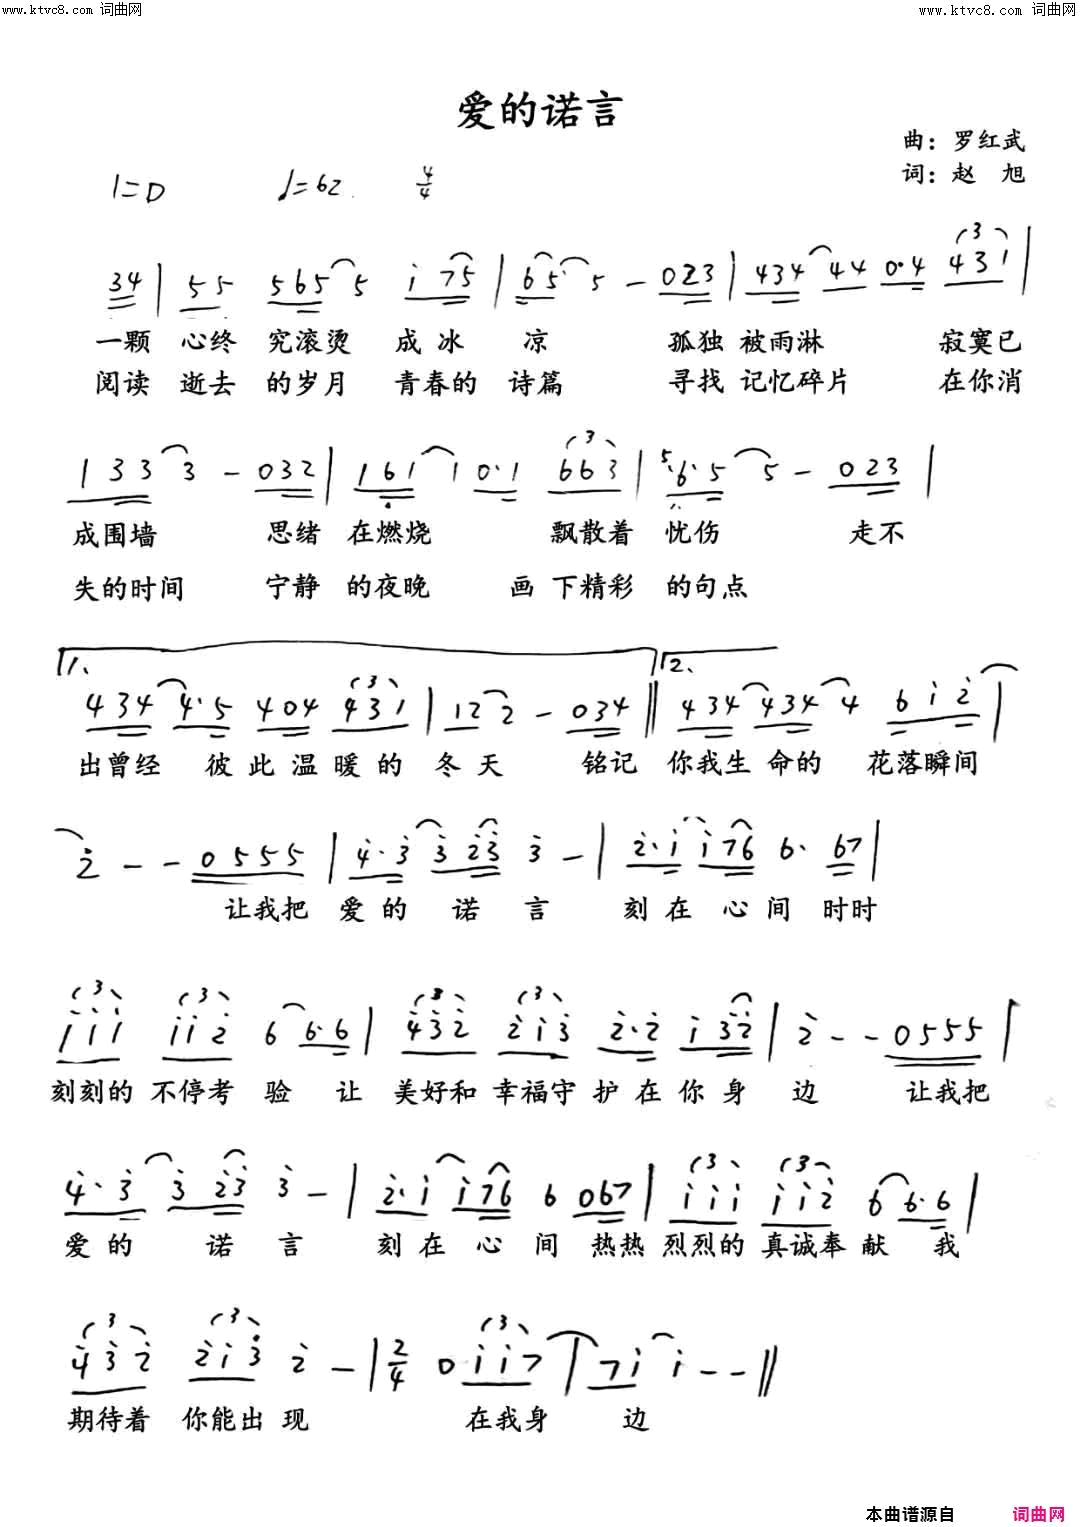 www.ktvc8.com 词曲网
www.ktvc8.com 词曲网
爱的诺言
曲：罗红武
词：赵 旭
1=D ♩=62. 4/4
34 | 55 565 5 i 75 | 65· 5 - 023 | 434 44 0·4 431 |
一颗 心终 究滚烫 成 冰 凉 孤独 被雨淋 寂寞已
阅读 逝去 的岁月 青春的 诗篇 寻找 记忆碎片 在你消
133 3 - 032 | 161 1 0·1 663 | 6·5 5 - 023 |
成围墙 思绪 在燃烧 飘散着 忧伤 走不
失的时间 宁静 的夜晚 画 下精彩 的句点
1. 2.
434 4·5 404 431 | 122 - 034 || 434 434 4 6 i 2 |
出曾经 彼 此 温 暖 的 冬 天 铭记 你我生 命的 花落瞬间
2 - - 0555 | 4·3 3 23 3 - | 2·i i76 6· 67 |
让我把 爱 的 诺 言 刻 在 心 间 时时
iii ii2 6 6·6 | 432 2i3 2·2 i 32 | 2 - - 0555 |
刻刻的 不停考 验 让 美好和 幸福守 护 在 你 身 边 让我把
4·3 3 23 3 - | 2·i i76 6 067 | iii ii2 6 6·6 |
爱 的 诺 言 刻 在 心 间 热热 烈烈的 真诚奉 献 我
432 2i3 2 - | 2/4 0 ii7 | 7i i - - ||
期待着 你能出 现 在我身 边
本曲谱源自 词曲网